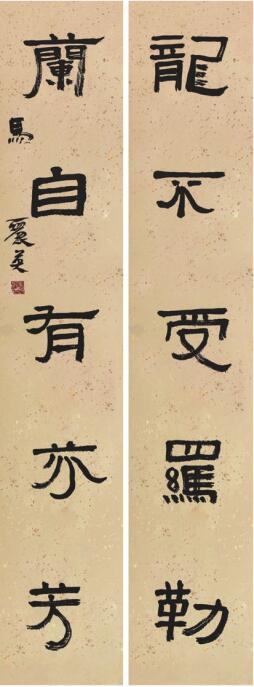 龍不受羈勒
蘭自有芬芳
馬